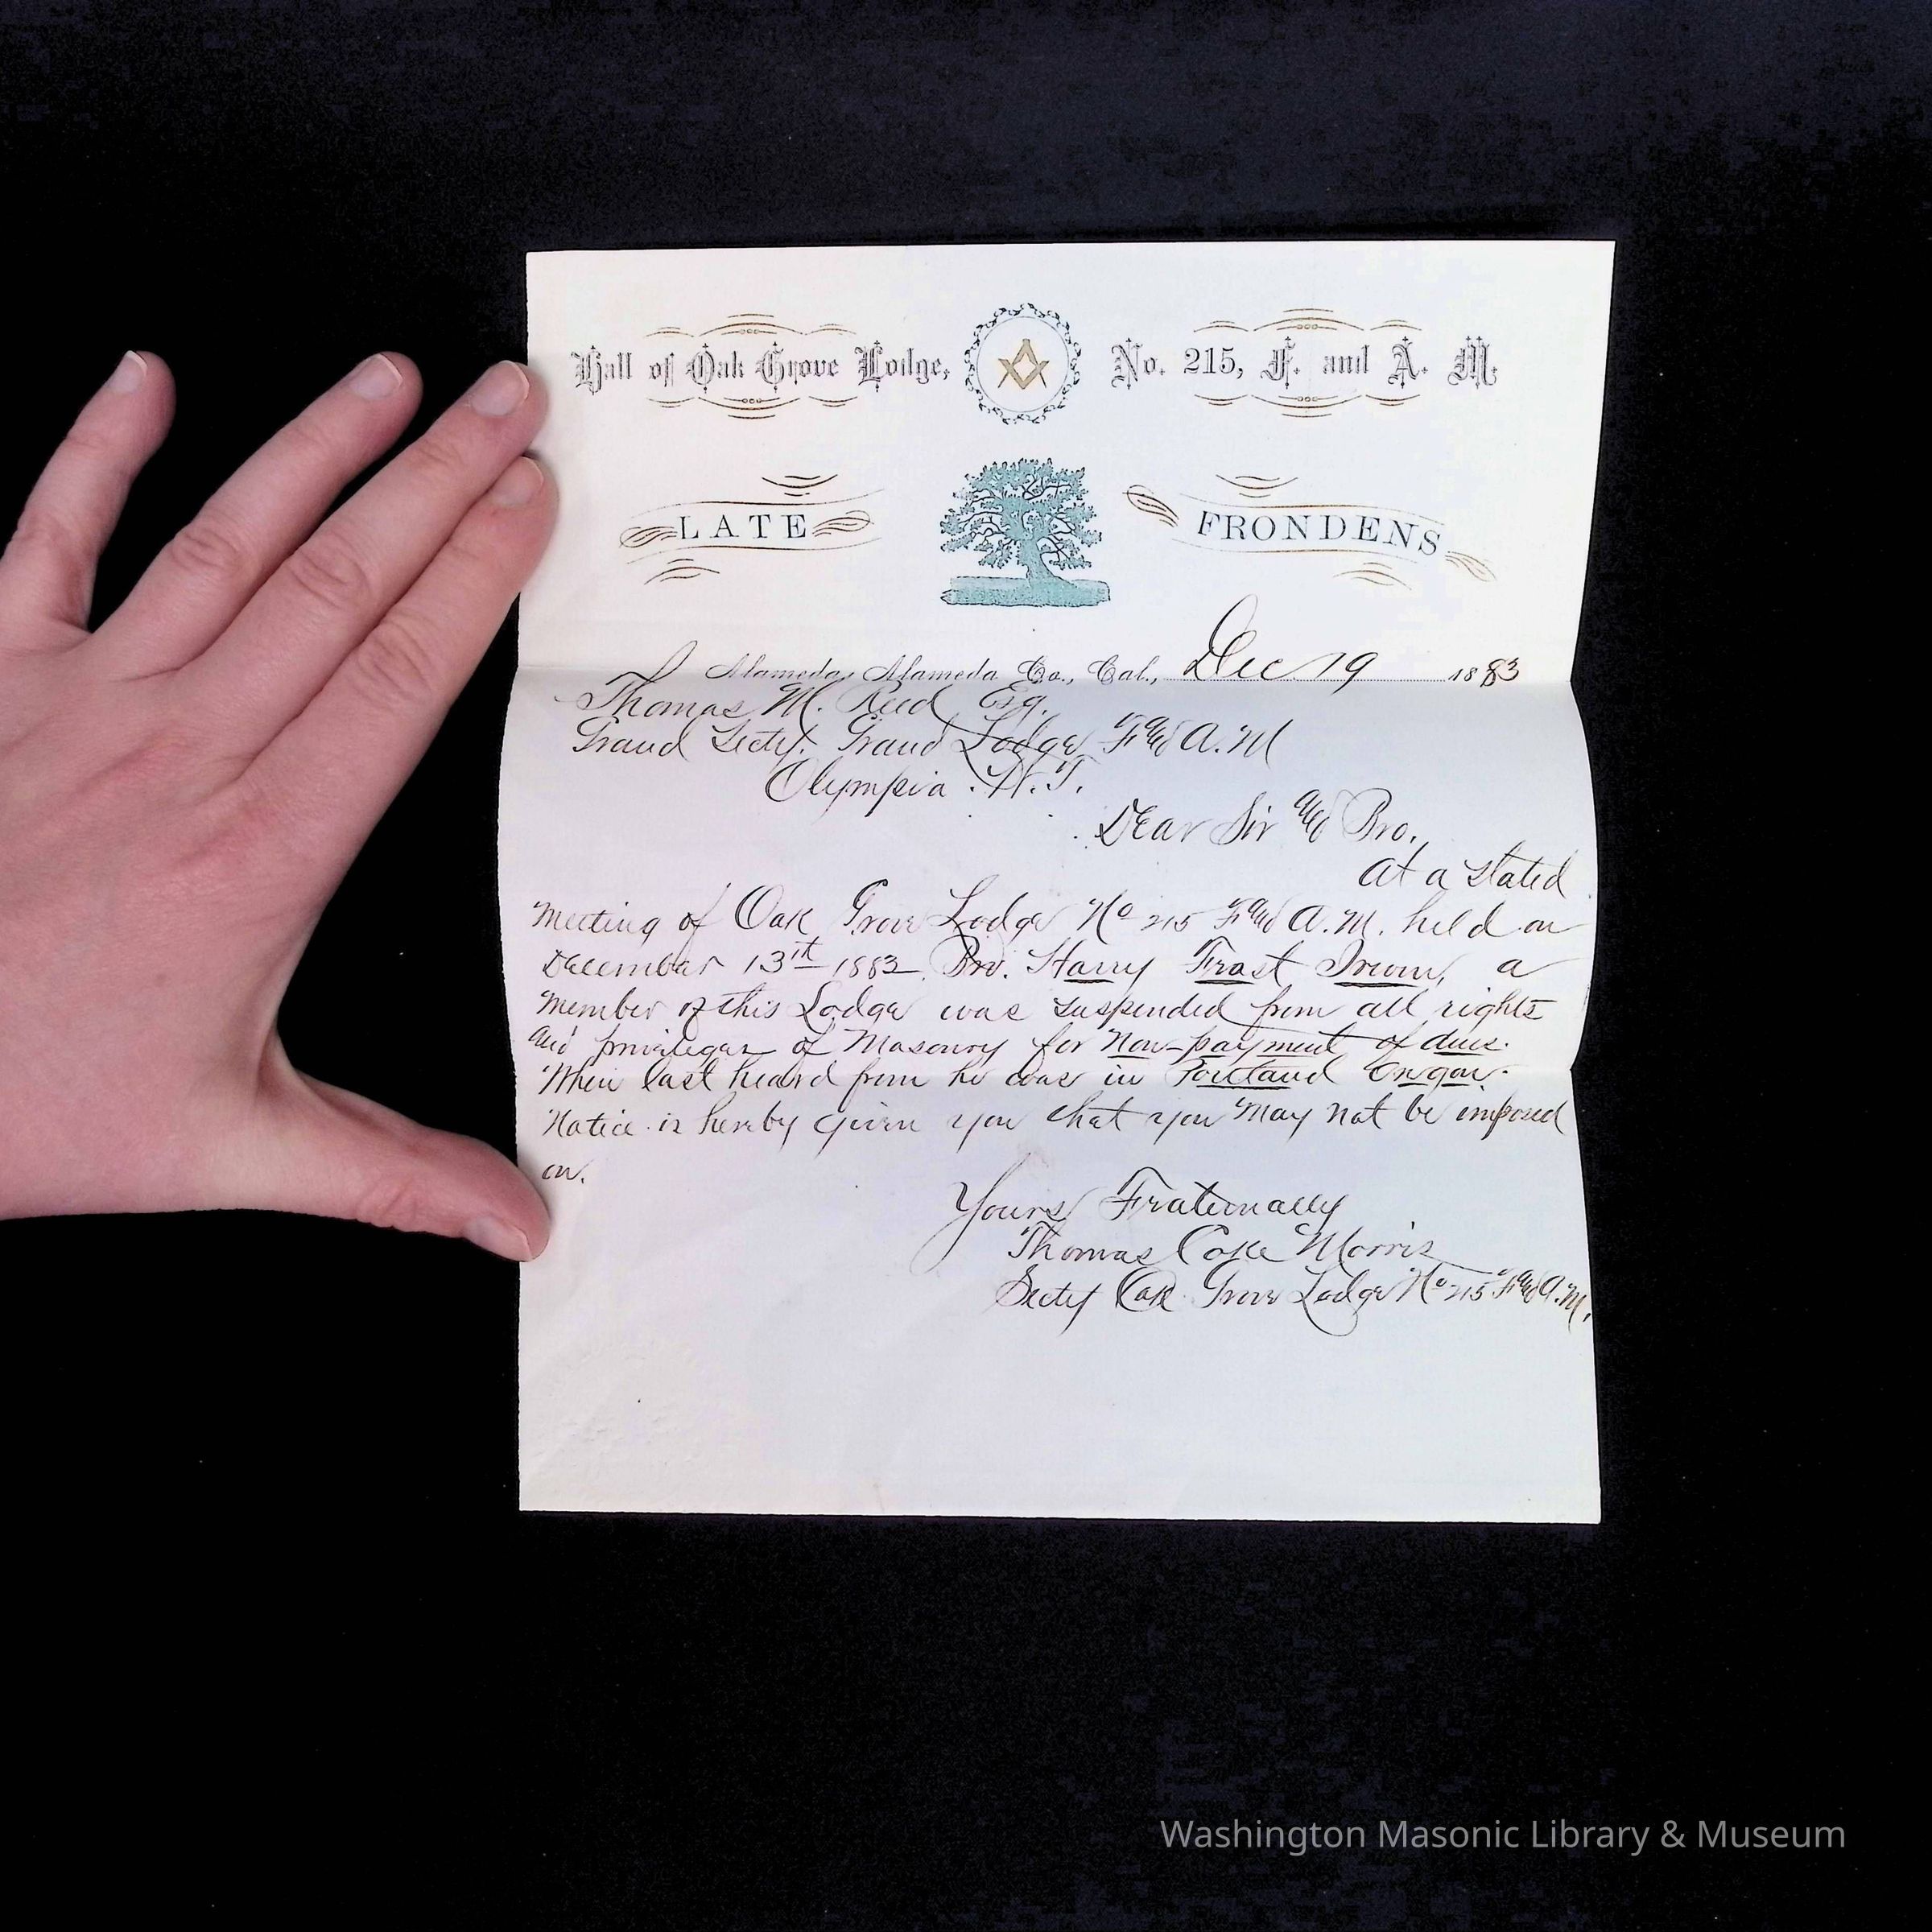 Hall of Oak Grove Lodge, No. 215, F. and A. M.
LATE FRONDENS
Alameda, Alameda Co., Cal., Dec 19 1883
Thomas M. Reed Esq.
Grand Secty. Grand Lodge F and A. M
Olympia. W. T.
Dear Sir and Bro.
At a stated
meeting of Oak Grove Lodge No 215 F and A. M. held on
December 13th 1883 Bro. Harry Frost Irwin, a
member of this Lodge was suspended from all rights
and privileges of Masonry for Non-payment of dues.
When last heard from he was in Portland Oregon.
Notice is hereby given you that you may not be imposed
on.
Yours Fraternally
Thomas Coke Morris
Secty Oak Grove Lodge No 215 F and A. M.
Washington Masonic Library & Museum